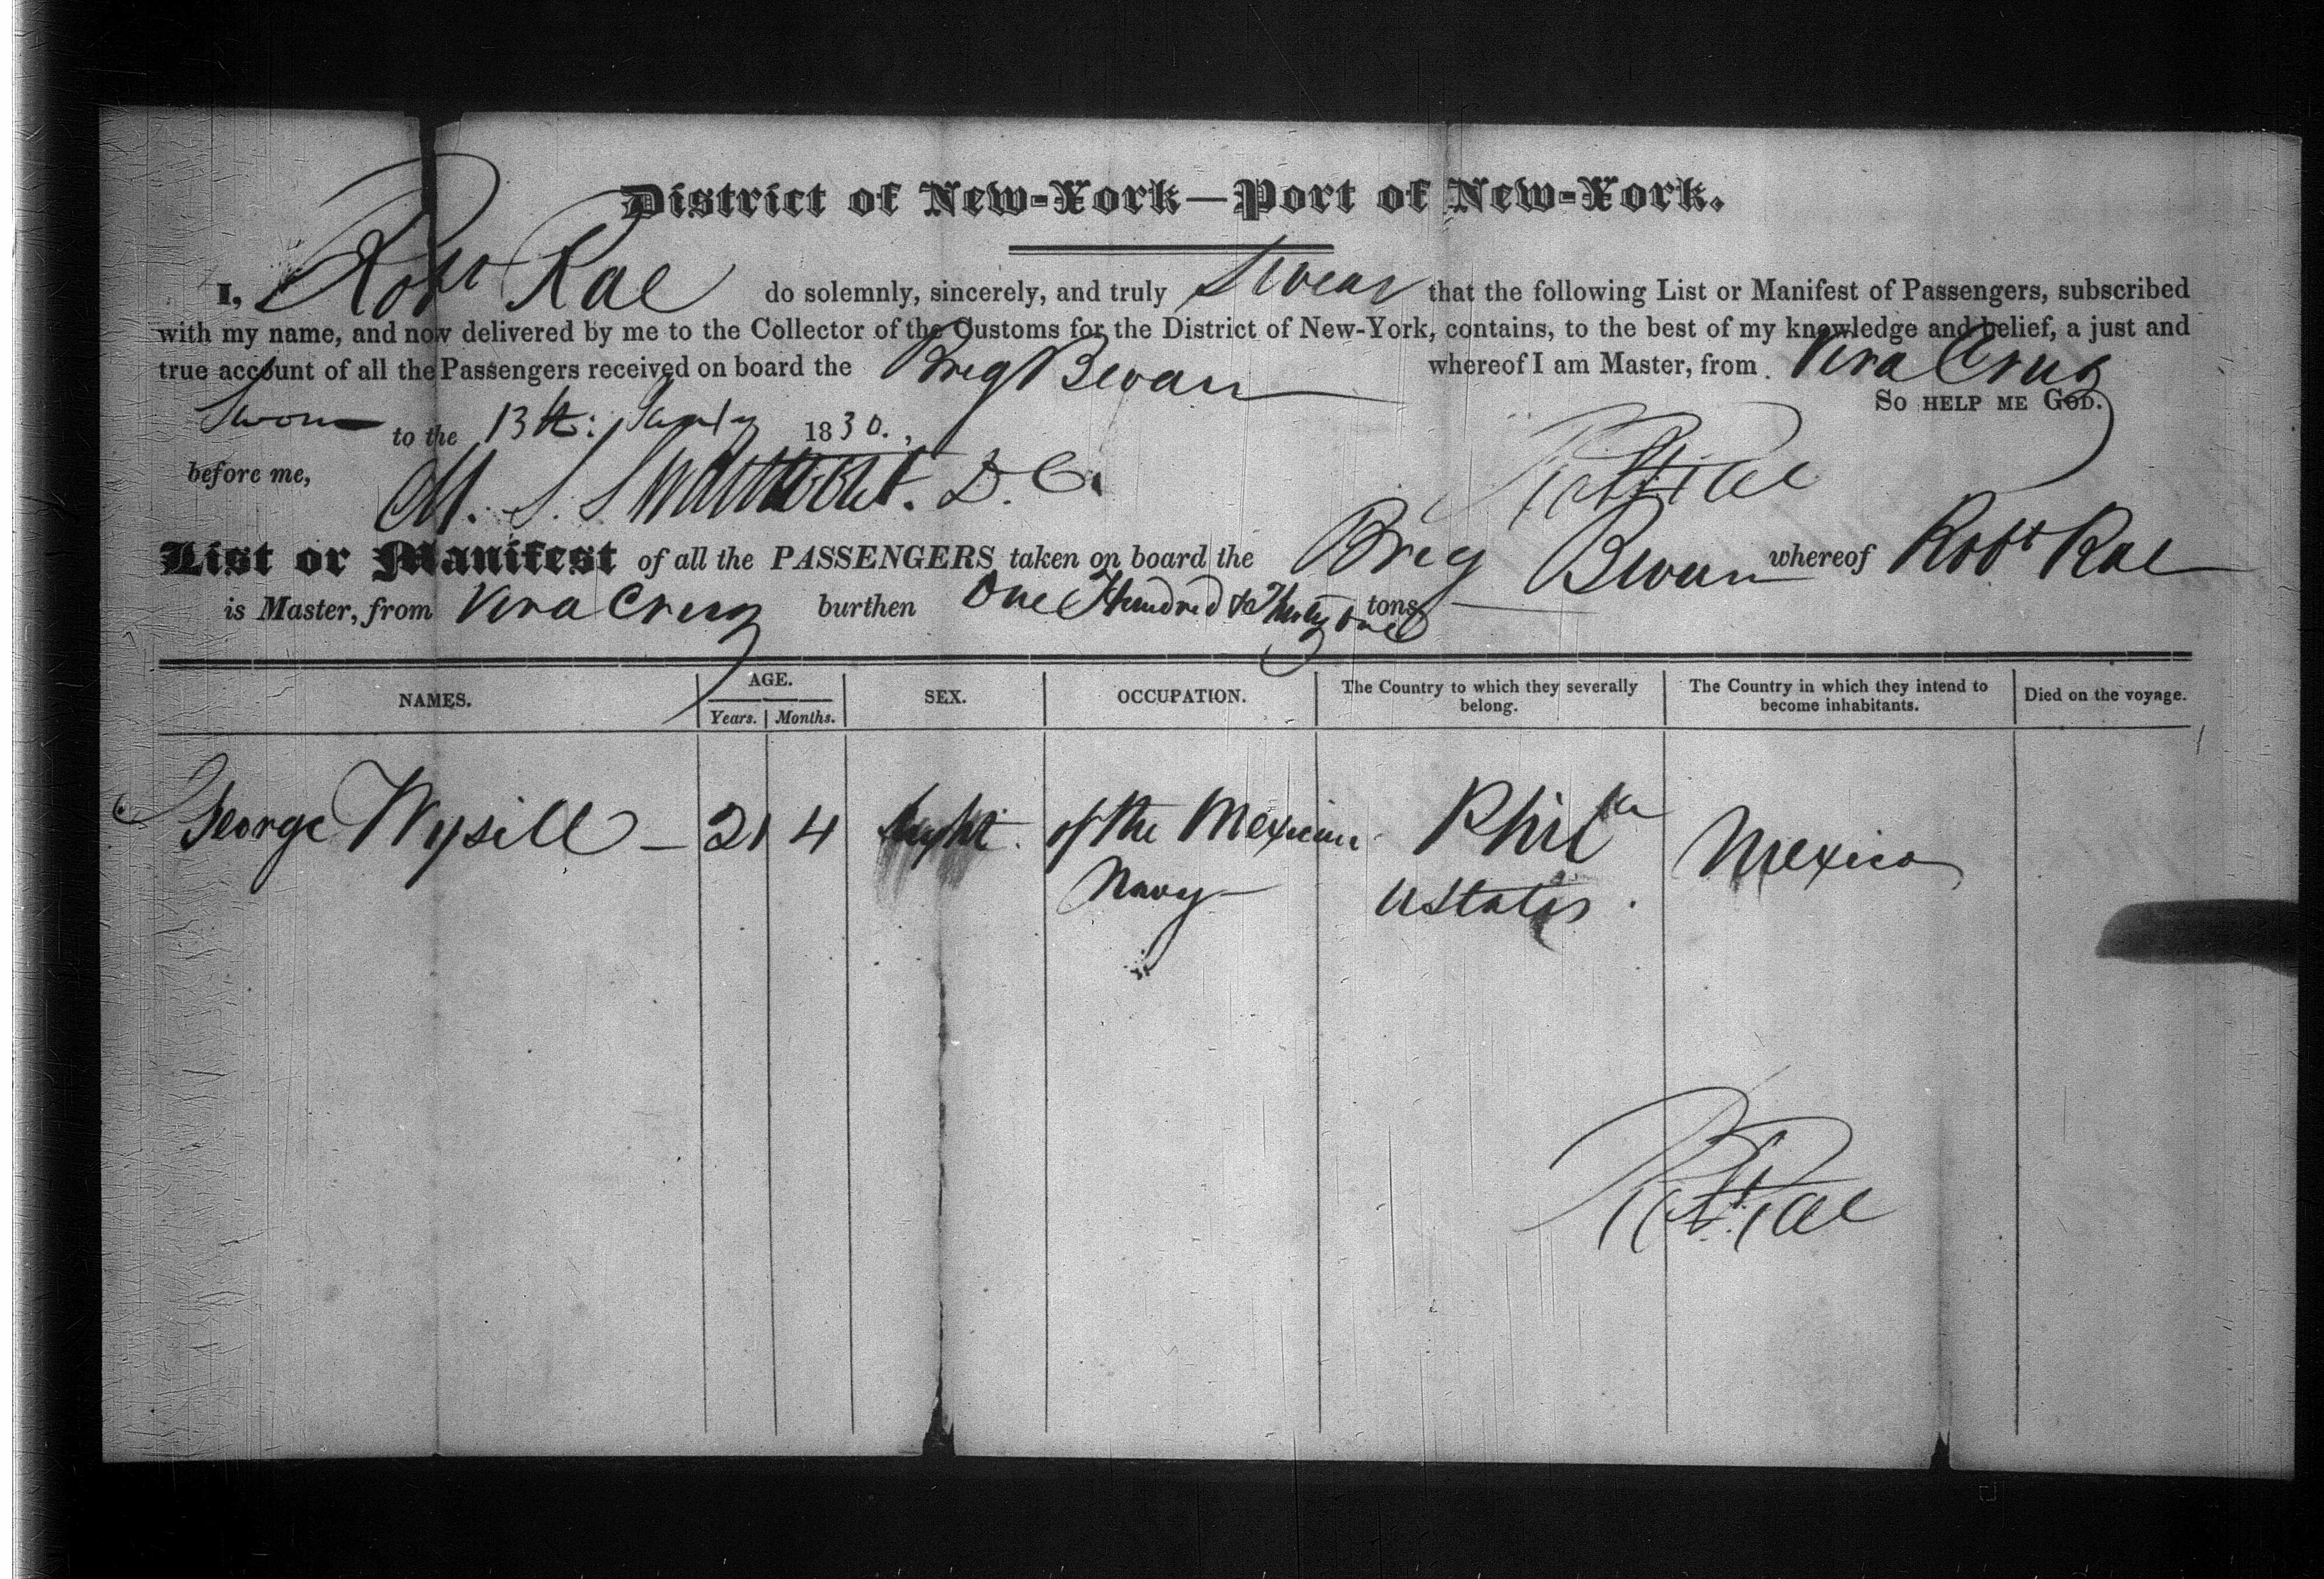 District of New-York—Port of New-York.
I, Robt Rae do solemnly, sincerely, and truly Swear that the following List or Manifest of Passengers, subscribed
with my name, and now delivered by me to the Collector of the Customs for the District of New-York, contains, to the best of my knowledge and belief, a just and
true account of all the Passengers received on board the Brig Bwan whereof I am Master, from Vera Cruz
So help me God.
Sworn to the 13th: 1830.
Robt Rae
before me, M. S. Swartwout. D. C.
List or Manifest of all the PASSENGERS taken on board the Brig Bwan whereof Robt Rae
is Master, from Vera Cruz burthen One Hundred & Thirty one tons
NAMES. AGE. Years. Months. SEX. OCCUPATION. The Country to which they severally belong. The Country in which they intend to become inhabitants. Died on the voyage.
George Wysill — 21 4 of the Mexican Phila Mexico
Navy UStates.
Robt Rae